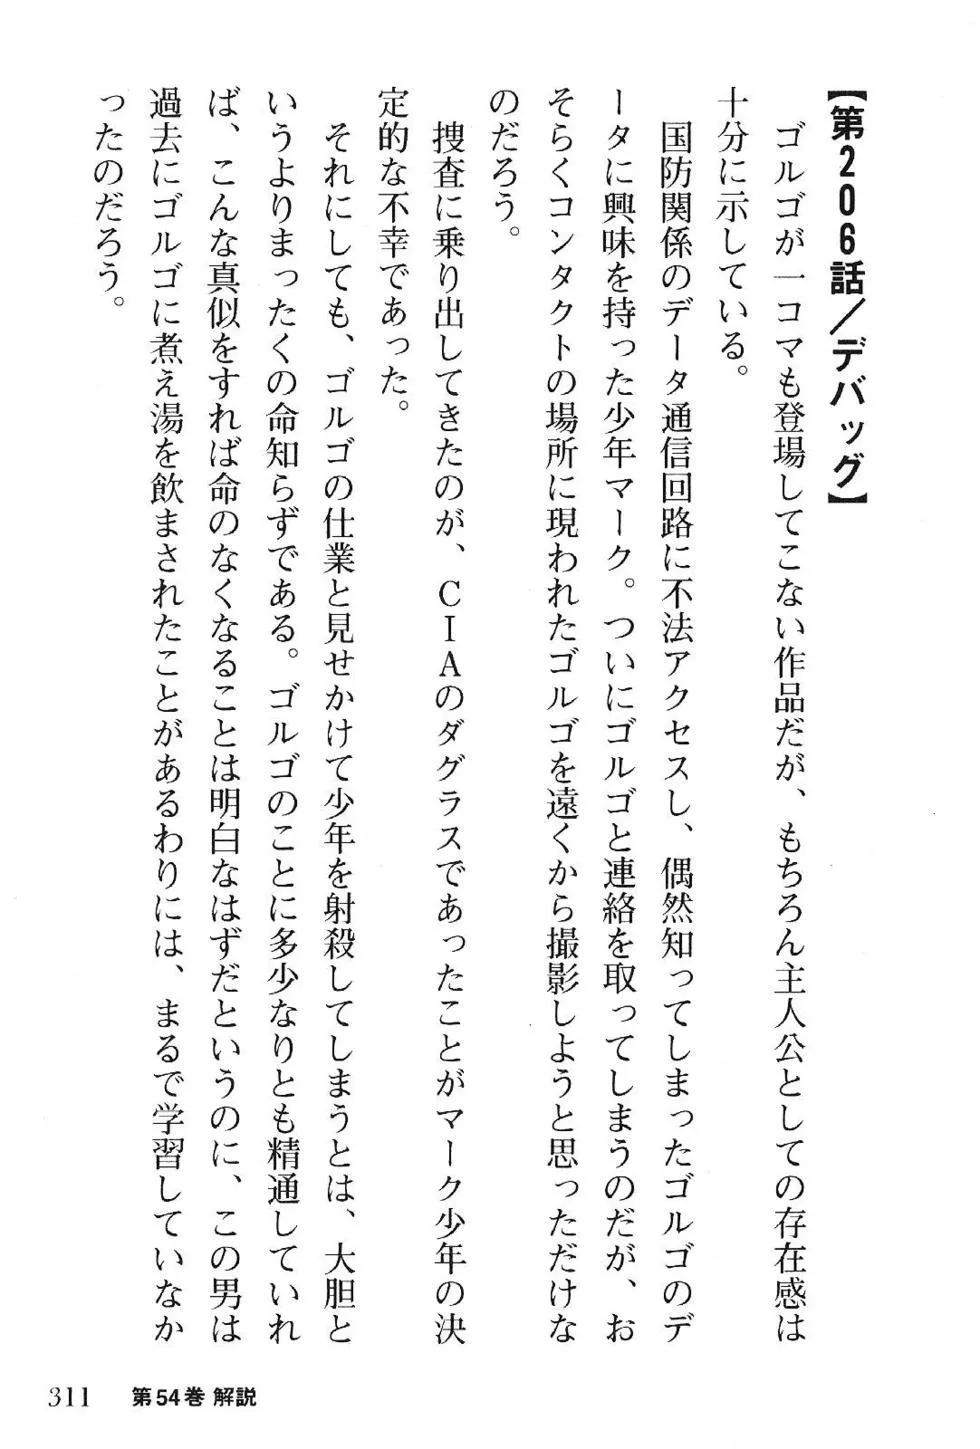 【第206話／デバッグ】
ゴルゴが一コマも登場してこない作品だが、もちろん主人公としての存在感は
十分に示している。
国防関係のデータ通信回路に不法アクセスし、偶然知ってしまったゴルゴのデ
ータに興味を持った少年マーク。ついにゴルゴと連絡を取ってしまうのだが、お
そらくコンタクトの場所に現われたゴルゴを遠くから撮影しようと思っただけな
のだろう。
捜査に乗り出してきたのが、CIAのダグラスであったことがマーク少年の決
定的な不幸であった。
それにしても、ゴルゴの仕業と見せかけて少年を射殺してしまうとは、大胆と
いうよりまったくの命知らずである。ゴルゴのことに多少なりとも精通していれ
ば、こんな真似をすれば命のなくなることは明白なはずだというのに、この男は
過去にゴルゴに煮え湯を飲まされたことがあるわりには、まるで学習していなか
ったのだろう。
311 第54巻 解説